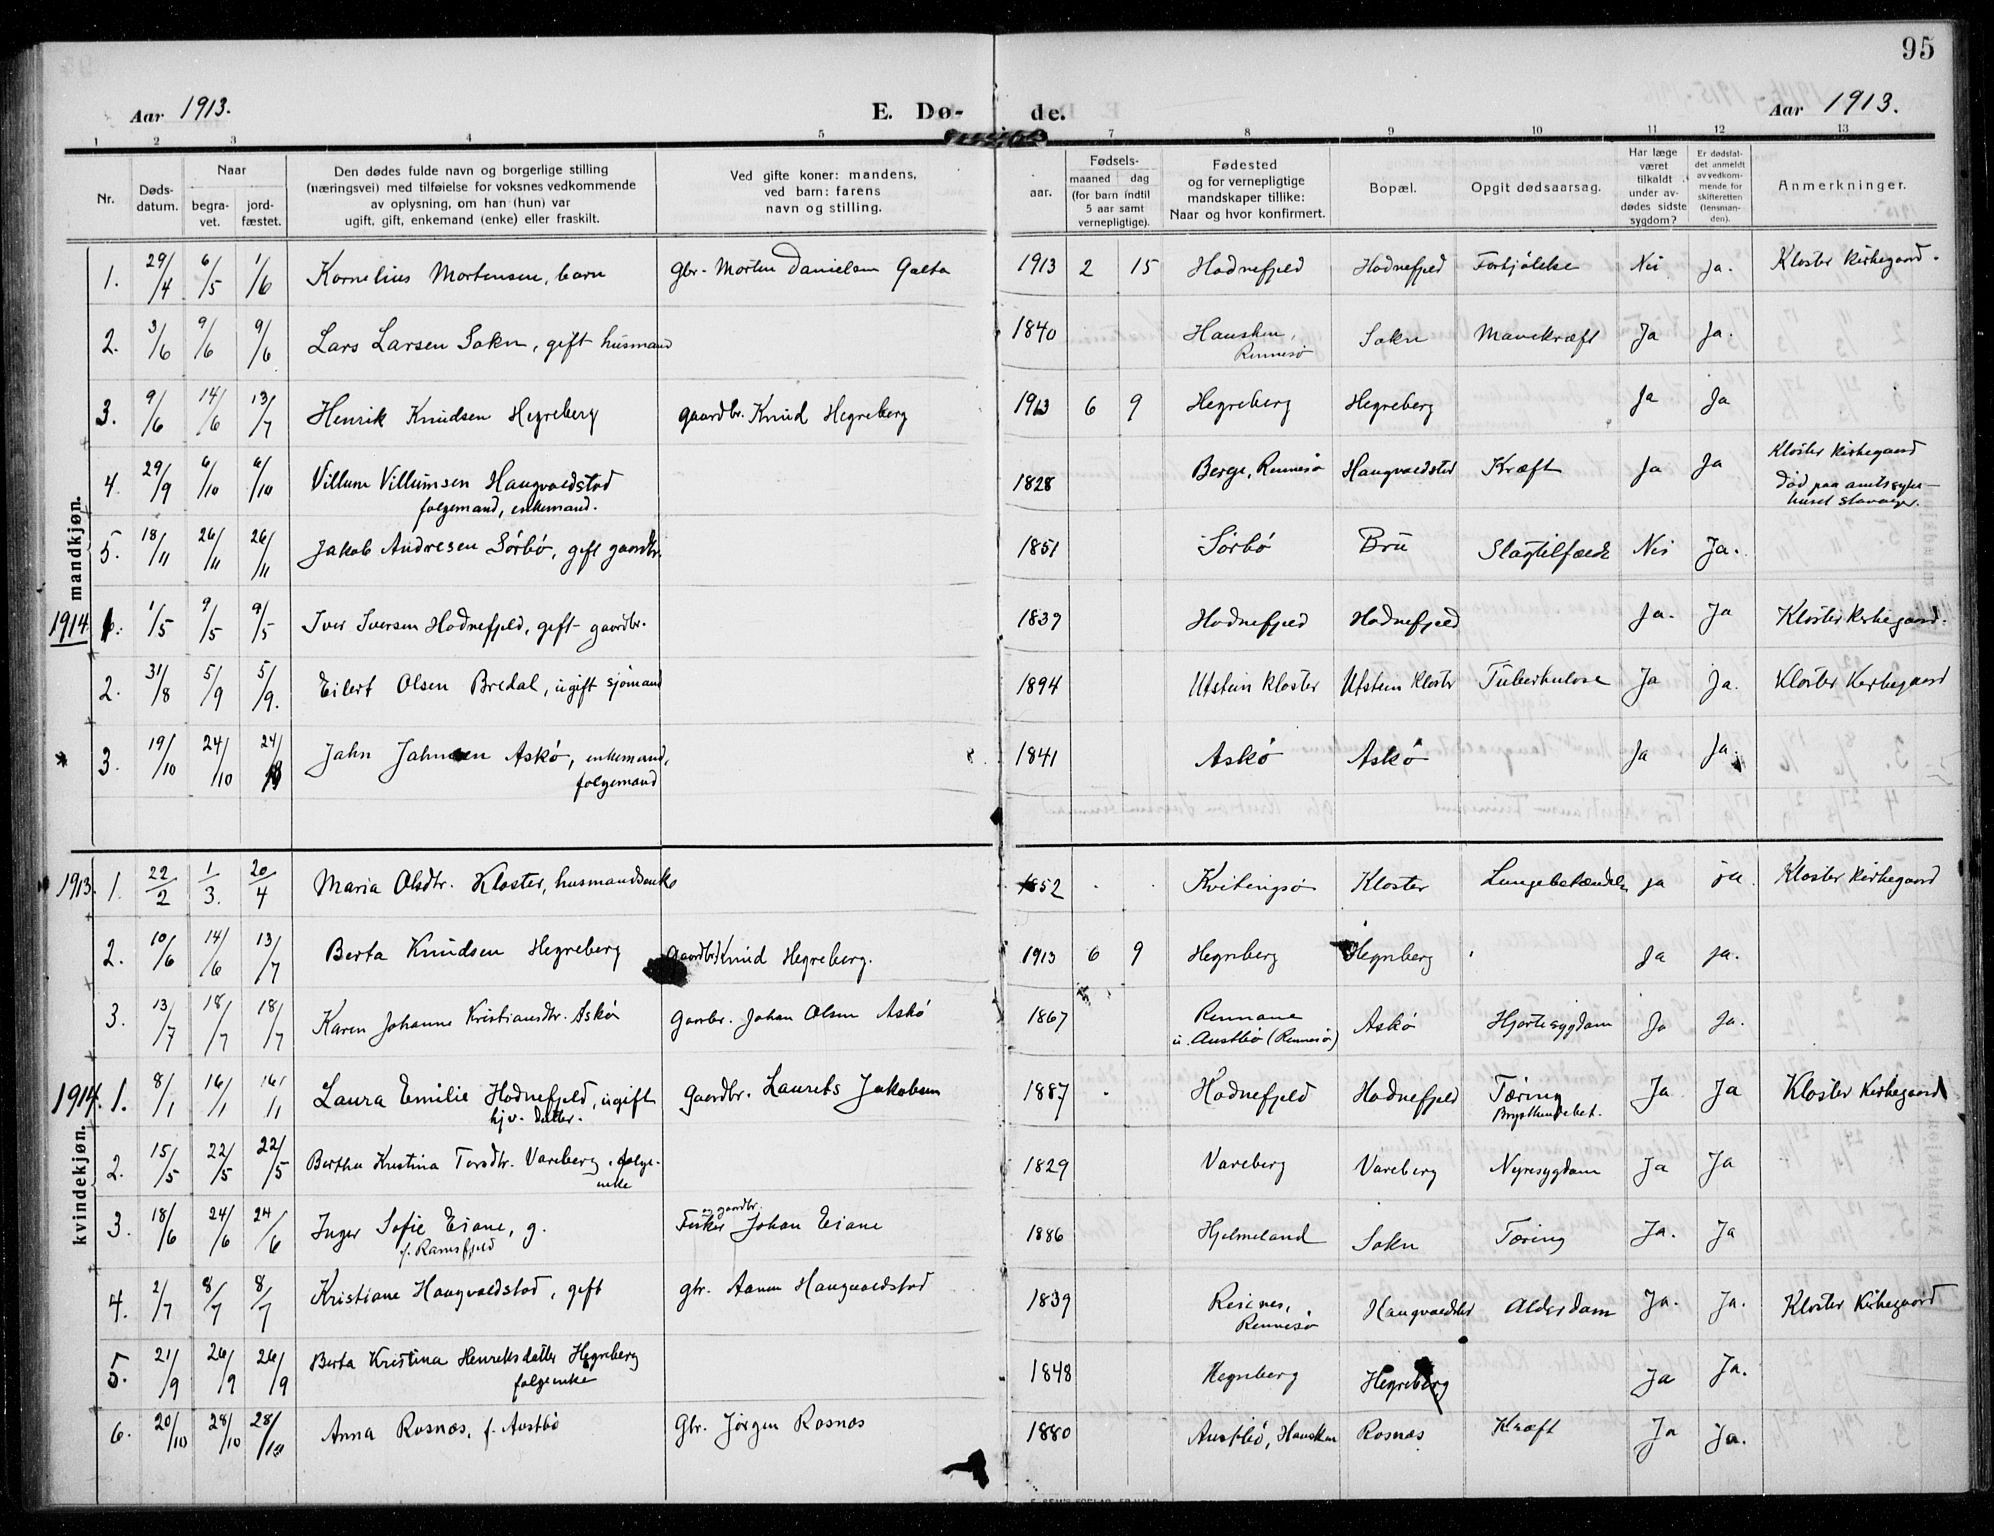 95
Aar 1913. E. Dø- de. Aar 1913.
1 2 3 4 5 7 8 9 10 11 12 13
Nr. Døds-datum. Naar begra-vet. jord-fæstet. Den dødes fulde navn og borgerlige stilling (næringsvei) med tilføielse for voksnes vedkommende av oplysning, om han (hun) var ugift, gift, enkemand (enke) eller fraskilt. Ved gifte koner: mandens, ved barn: farens navn og stilling. aar. Fødsels- maaned dag (for barn indtil 5 aar samt vernepligtige). Fødested og for vernepligtige mandskaper tillike: Naar og hvor konfirmert. Bopæl. Opgit dødsaarsag. Har læge været tilkaldt under av-dødes sidste sygdom? Er dødsfal-det anmeldt av vedkom-mende for skifteretten (lensman-den). Anmerkninger.
mandkjøn.
1. 29/4 6/5 1/6 Kornelius Mortensen, barn Gbr. Morten Danielsen Galta 1913 2 15 Hodnefjeld Hodnefjeld Forkjølelse Nei Ja. Kloster Kirkegaard.
2. 3/6 9/6 9/6 Lars Larsen Sokn, gift husmand 1840 Hausken, Rennesø Sokn Mavekræft Ja Ja.
3. 9/6 14/6 13/7 Henrik Knudsen Hegreberg gaardbr. Knud Hegreberg 1913 6 9 Hegreberg Hegreberg Ja Ja
4. 29/9 6/10 6/10 Villum Villumsen Haugvaldstad folgemand, enkemand. 1828 Berge, Rennesø Haugvaldstad Kræft Ja Ja Kloster Kirkegaard Død paa amtssyke-huset Stavanger.
5. 18/11 26/11 26/11 Jakob Andresen Sørbø, gift gaardbr. 1851 Sørbø Bru Slagtilfælde Nei Ja.
1914 1. 1/5 9/5 9/5 Iver Iversen Hodnefjeld, gift gaardbr. 1839 Hodnefjeld Hodnefjeld Ja. Ja Kloster Kirkegaard.
2. 31/8 5/9 5/9. Eilert Olsen Bredal, ugift sjømand 1894 Utstein Kloster Utstein Kloster Tuberkulose Ja Ja. Kloster Kirkegaard
3. 19/10 24/10 24/10 Jahn Jahnsen Askø, enkemand, folgemand 1841 Askø Askø Ja Ja.
kvindekjøn.
1913. 1. 22/2 1/3. 20/4 Maria Olsdtr. Kloster, husmandsenke 1852 Kvitingsø Kloster Lungebetændelse ja ja. Kloster Kirkegaard
2. 10/6 14/6 13/7 Berta Knudsen Hegreberg Gaardbr. Knud Hegreberg. 1913 6 9 Hegreberg Hegreberg Ja ja.
3. 13/7 18/7 18/7 Karen Johanne Kristiansdtr. Askø Gaardbr. Johan Olsen Askø 1867 Rennane u. Austbø (Rennesø) Askø Hjertesygdom Ja Ja.
1914. 1. 8/1 16/1 16/1 Laura Emilie Hodnefjeld, ugift hjv. datter. Gaardbr. Laurits Jakobsen 1887 Hodnefjeld Hodnefjeld Tæring Ja Ja Kloster Kirkegaard
2. 15/5 22/5 22/5 Bertha Kristina Torsdtr. Vareberg, folge-enke 1829 Vareberg Vareberg Nyresygdom Ja Ja
3. 18/6 24/6 24/6 Inger Sofie Eiane, g. f. Ramsfjeld Fisker og gaardbr. Johan Eiane 1886 Hjelmeland Sokn Tæring Ja. Ja
4. 2/7 8/7 8/7 Kristiane Haugvaldstad, gift gbr. Aanen Haugvaldstad 1839 Reienes, Rennesø Haugvaldstad Alderdom Ja. Ja. Kloster Kirkegaard
5. 21/9 26/9 26/9 Berta Kristina Henriksdatter Hegreberg folgeenke 1848 Hegreberg Hegreberg Ja Ja.
6. 20/10 28/10 28/10 Anna Rosnæs, f. Austbø Gbr. Jørgen Rosnæs 1880 Austbø, Hausken Rosnæs Kræft Ja Ja.